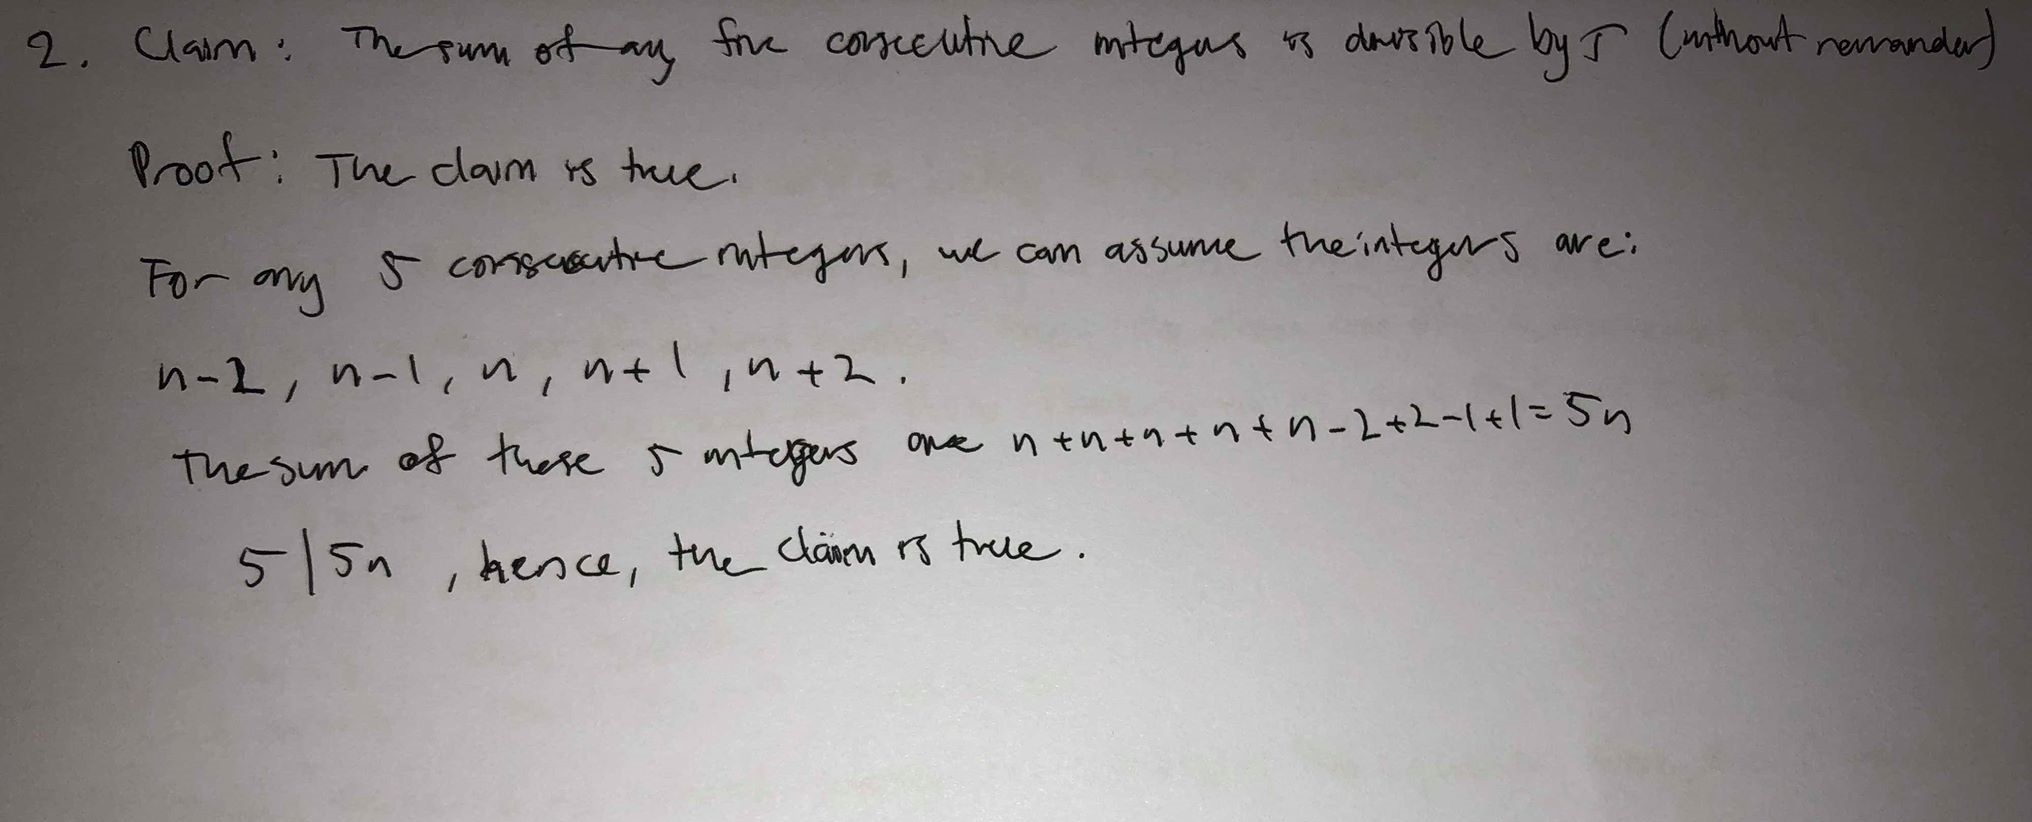 2. Claim: The sum of any five consecutive integers is divisible by 5 (without remainder)
Proof: The claim is true.
For any 5 consecutive integers, we can assume the integers are:
n-2, n-1, n, n+1, n+2.
The sum of these 5 integers are n+n+n+n+n-2+2-1+1=5n
5|5n, hence, the claim is true.